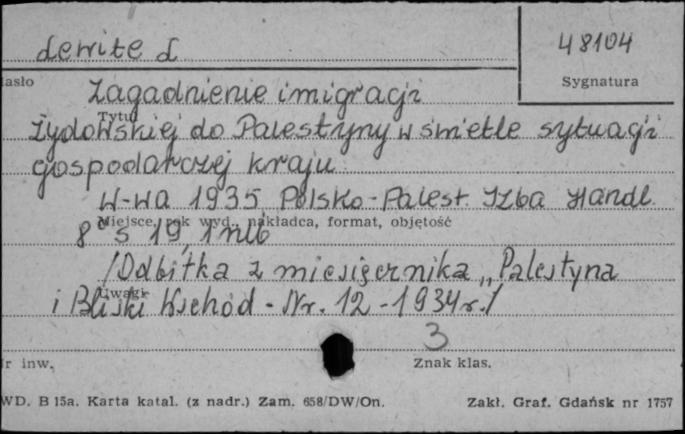 Lewite L
48104
asło
Sygnatura
Zagadnienie imigracji
Tytuł
żydowskiej do Palestyny w świetle sytuacji
gospodarczej kraju
W-wa 1935 Polsko-Palest. Izba Handl.
Miejsce, rok wyd., nakładca, format, objętość
8° s 19, 1 nlb
/Odbitka z miesięcznika „Palestyna
Uwagi
i Bliski Wschód - Nr. 12 - 1934 r./
3
r inw.
Znak klas.
WD. B 15a. Karta katal. (z nadr.) Zam. 658/DW/On.
Zakł. Graf. Gdańsk nr 1757